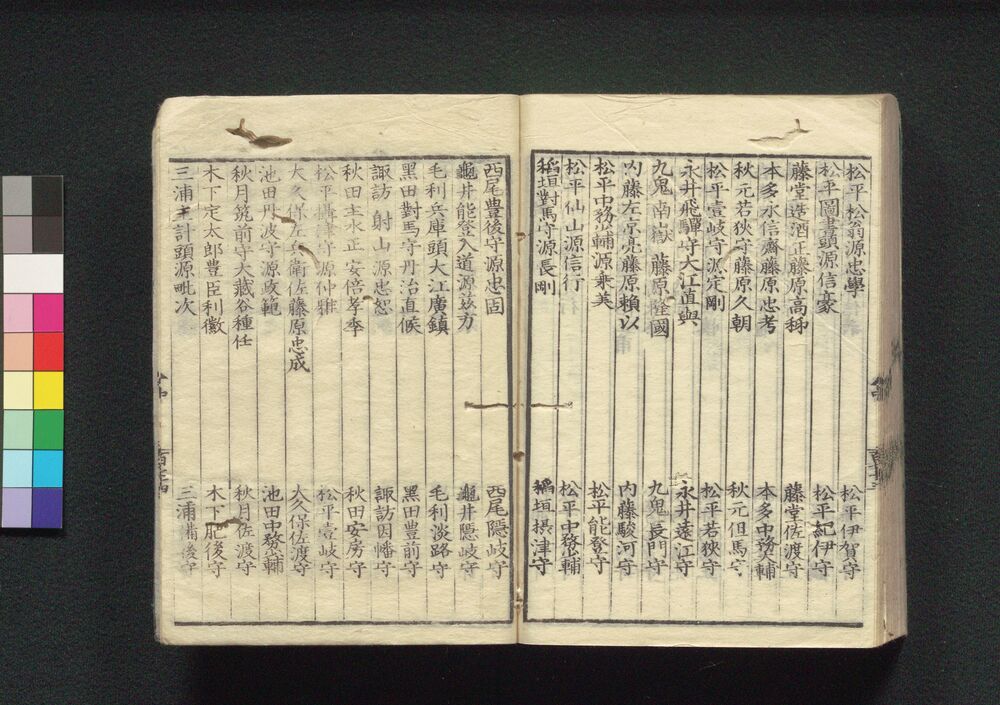 松平松翁源忠學　松平伊賀守
松平圖書頭源信豪　松平紀伊守
藤堂造酒正藤原高秭　藤堂佐渡守
本多水信齋藤原忠考　本多中務大輔
秋元若狹守藤原久朝　秋元但馬守
松平壹岐守源定剛　松平若狹守
永井飛驒守大江直與　永井遠江守
九鬼南嶽藤原隆國　九鬼長門守
內藤左京亮藤原賴以　內藤駿河守
松平中務少輔源乘美　松平能登守
松平仙山源信行　松平中務少輔
稻垣對馬守源長剛　稻垣摂津守
西尾豊後守源忠固　西尾隠岐守
龜井能登入道源茲方　龜井隠岐守
毛利兵庫頭大江廣鎮　毛利淡路守
黑田對馬守丹治直候　黑田豊前守
諏訪射山源忠恕　諏訪因幡守
秋田主水正安倍孝季　秋田安房守
松平攝津守源仲雅　松平壱岐守
大久保左兵衛佐藤原忠成　大久保佐渡守
池田丹波守源政範　池田中務少輔
秋月筑前守大藏谷種任　秋月佐渡守
木下定太郎豊臣利徽　木下肥後守
三浦主計頭源毗次　三浦備後守